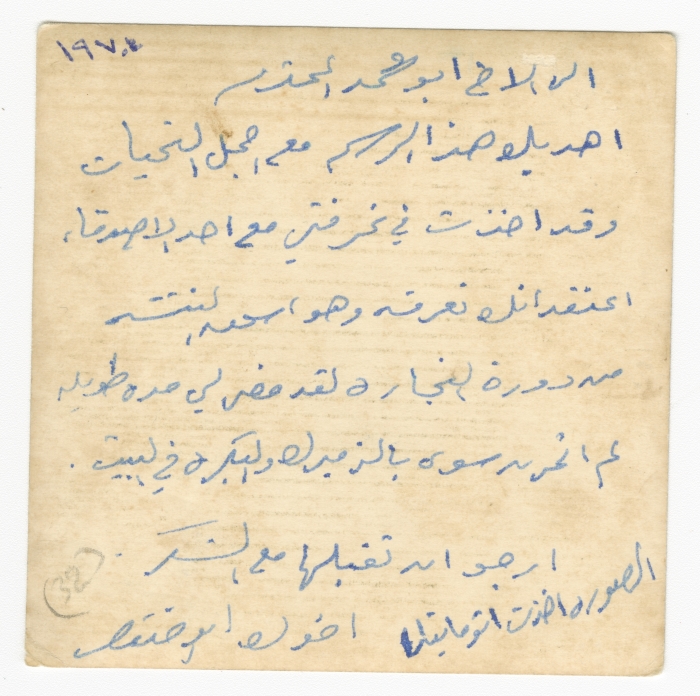 ١٩٧٠
الى الاخ ابو محمد المحترم
اهديك هذا الرسم مع اجمل التحيات
وقد اخذت في غرفتي مع احد الاصدقاء
اعتقد انك تعرفه وهو اسمه النتشه
من دورة النجاره لقد مضى لي مده طويله
لم اتمرن سوى بالزمبرك والبكره في البيت .
ارجو ان تقبلها مع الشكر .
الصوره اخذت اتوماتيك
اخوك ابو
38